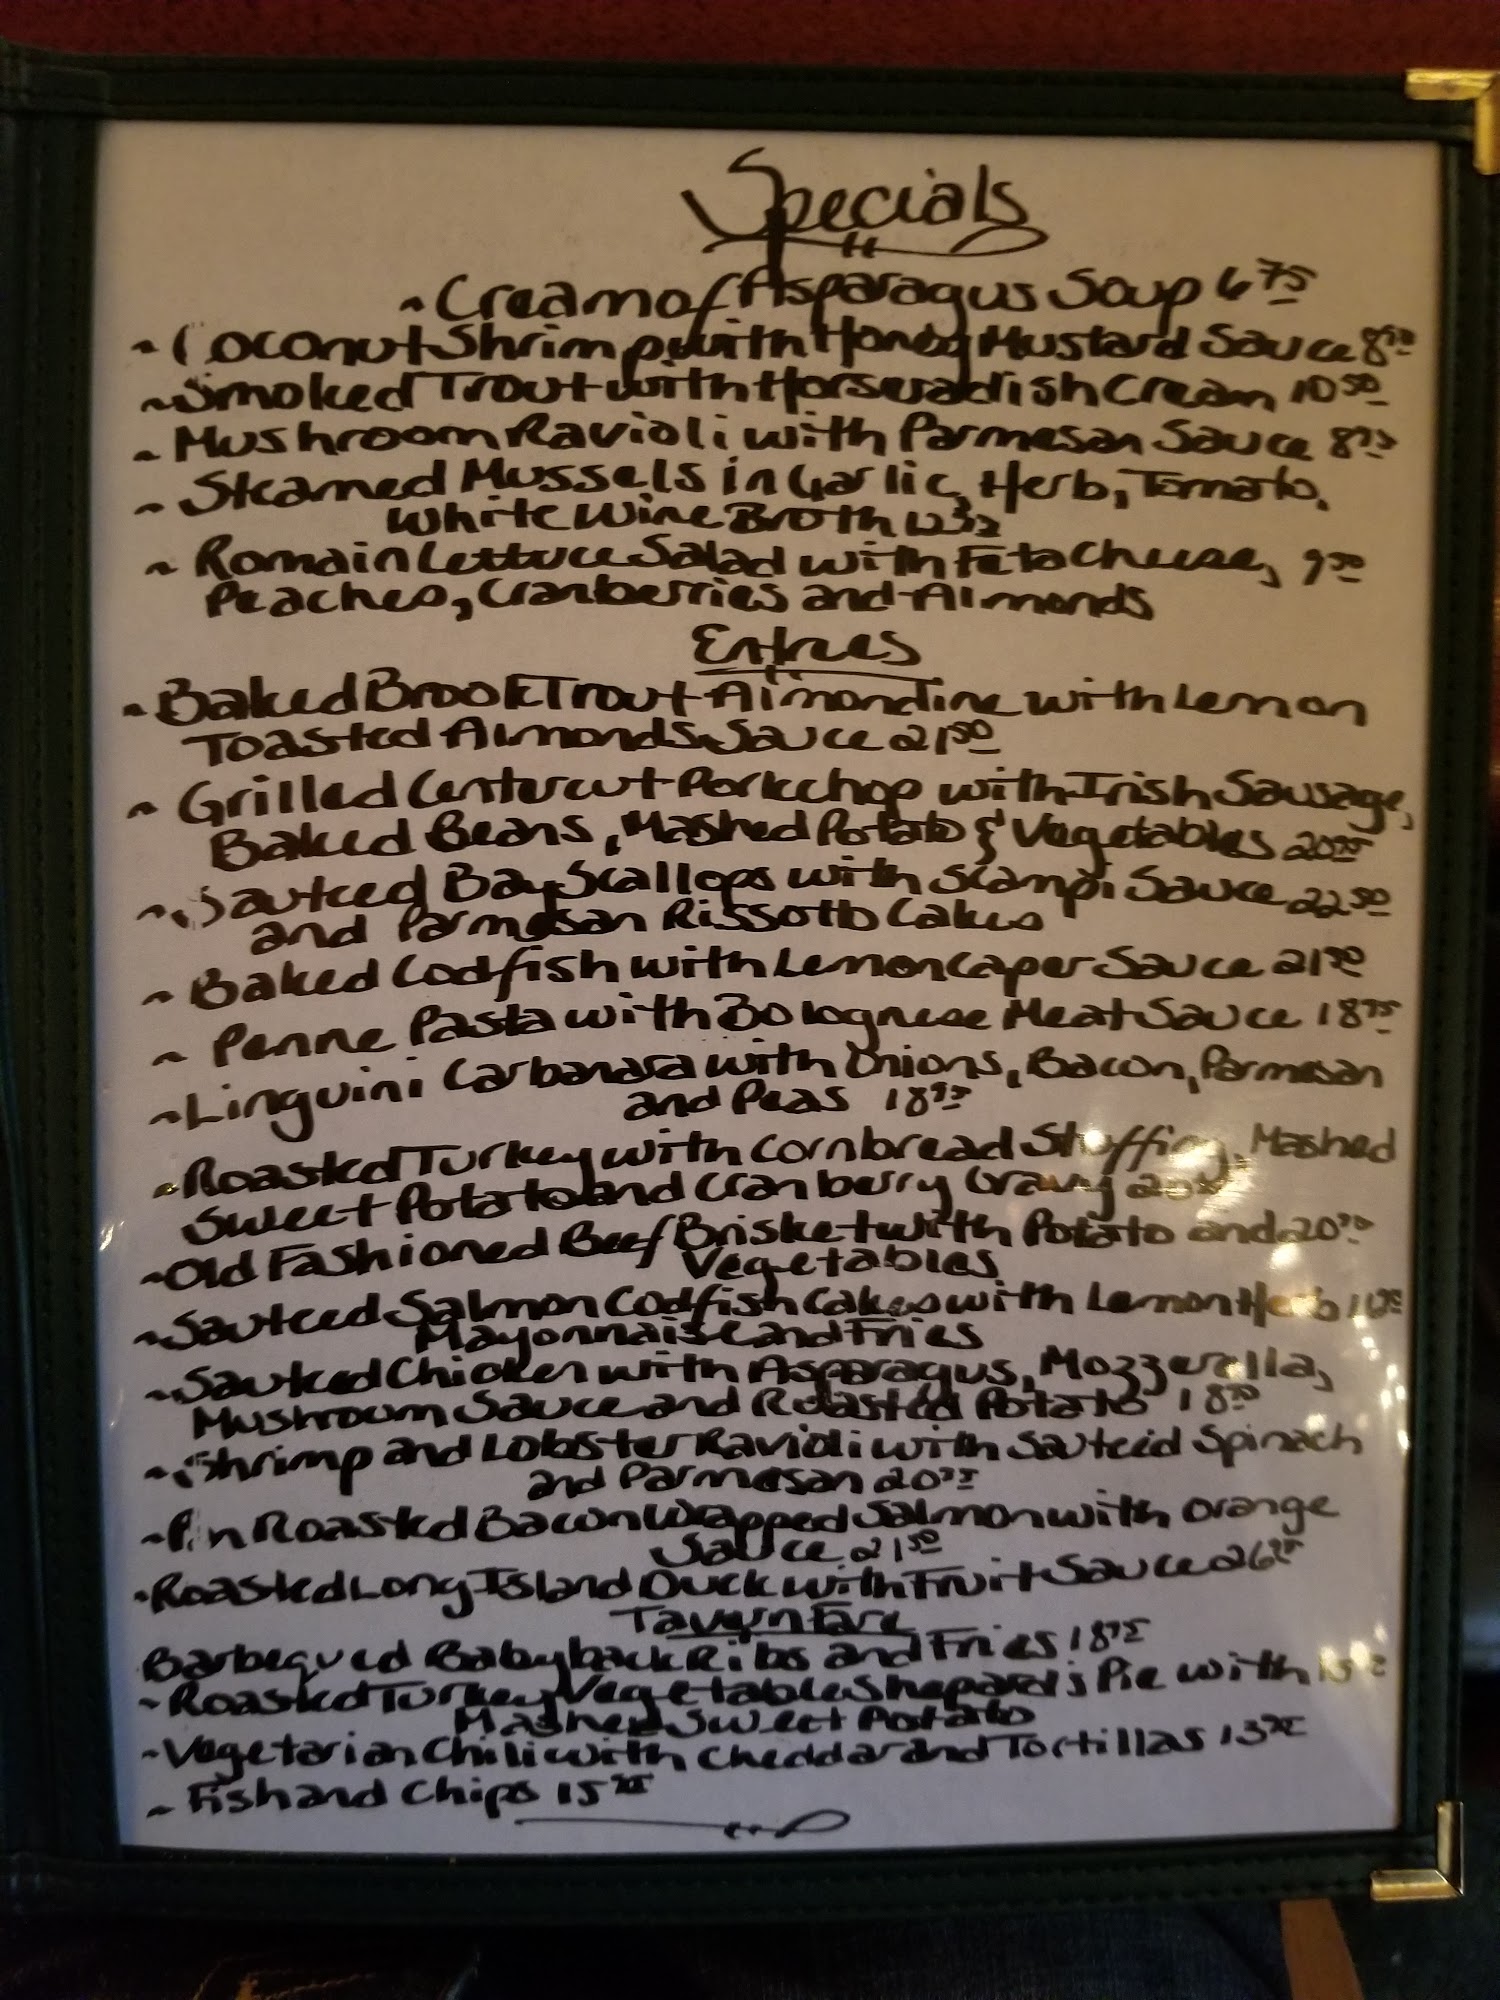 Specials
~ Cream of Asparagus Soup 6 75
~ Coconut Shrimp with Honey Mustard Sauce
~ Smoked Trout with Horseradish Cream 10 50
~ Mushroom Ravioli with Parmesan Sauce 8 75
~ Steamed Mussels in Garlic, Herb, Tomato,
White Wine Broth
~ Romain Lettuce Salad with Feta Cheese,
Peaches, Cranberries and Almonds
Entrees
~ Baked Brook Trout Almondine with Lemon
Toasted Almonds Sauce 21 50
~ Grilled Centercut Porkchop with Irish Sausage,
Baked Beans, Mashed Potato & Vegetables 20 75
~ Sauteed Bay Scallops with Scampi Sauce 22 50
and Parmesan Rissotto Cakes
~ Baked Codfish with Lemon Caper Sauce 21 50
~ Penne Pasta with Bolognese Meat Sauce 18 75
~ Linguini Carbanara with Onions, Bacon, Parmesan
and Peas
~ Roasted Turkey with Cornbread Stuffing, Mashed
Sweet Potato and Cranberry Gravy
~ Old Fashioned Beef Brisket with Potato and
Vegetables
~ Sauteed Salmon Codfish Cakes with Lemon Herb
Mayonnaise and Fries
~ Sauteed Chicken with Asparagus, Mozzerella,
Mushroom Sauce and Roasted Potato
~ Shrimp and Lobster Ravioli with Sauteed Spinach
and Parmesan 20 75
~ Pan Roasted Bacon Wrapped Salmon with Orange
Sauce 21 50
~ Roasted Long Island Duck with Fruit Sauce
Tavern Fare
Barbequed Babyback Ribs and Fries 18 75
~ Roasted Turkey Vegetable Shepard's Pie with
Mashed Sweet Potato
~ Vegetarian Chili with Cheddar and Tortillas
~ Fish and Chips